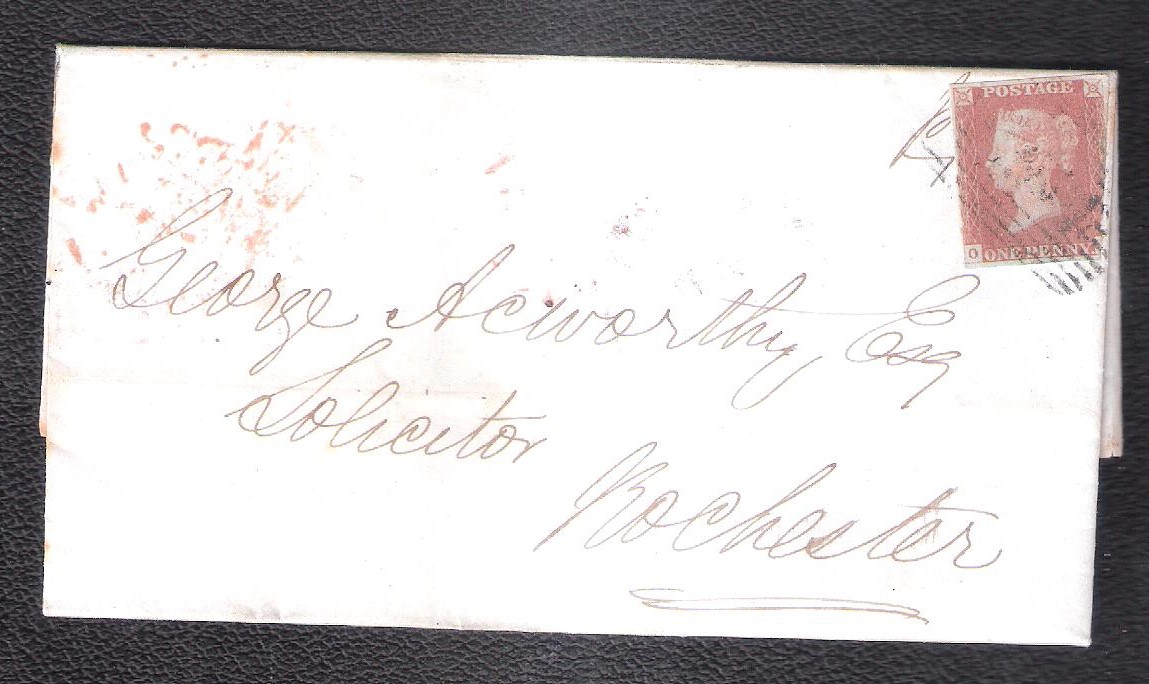 POSTAGE
O
ONE PENNY
George Acworthy, Esq
Solicitor
Rochester